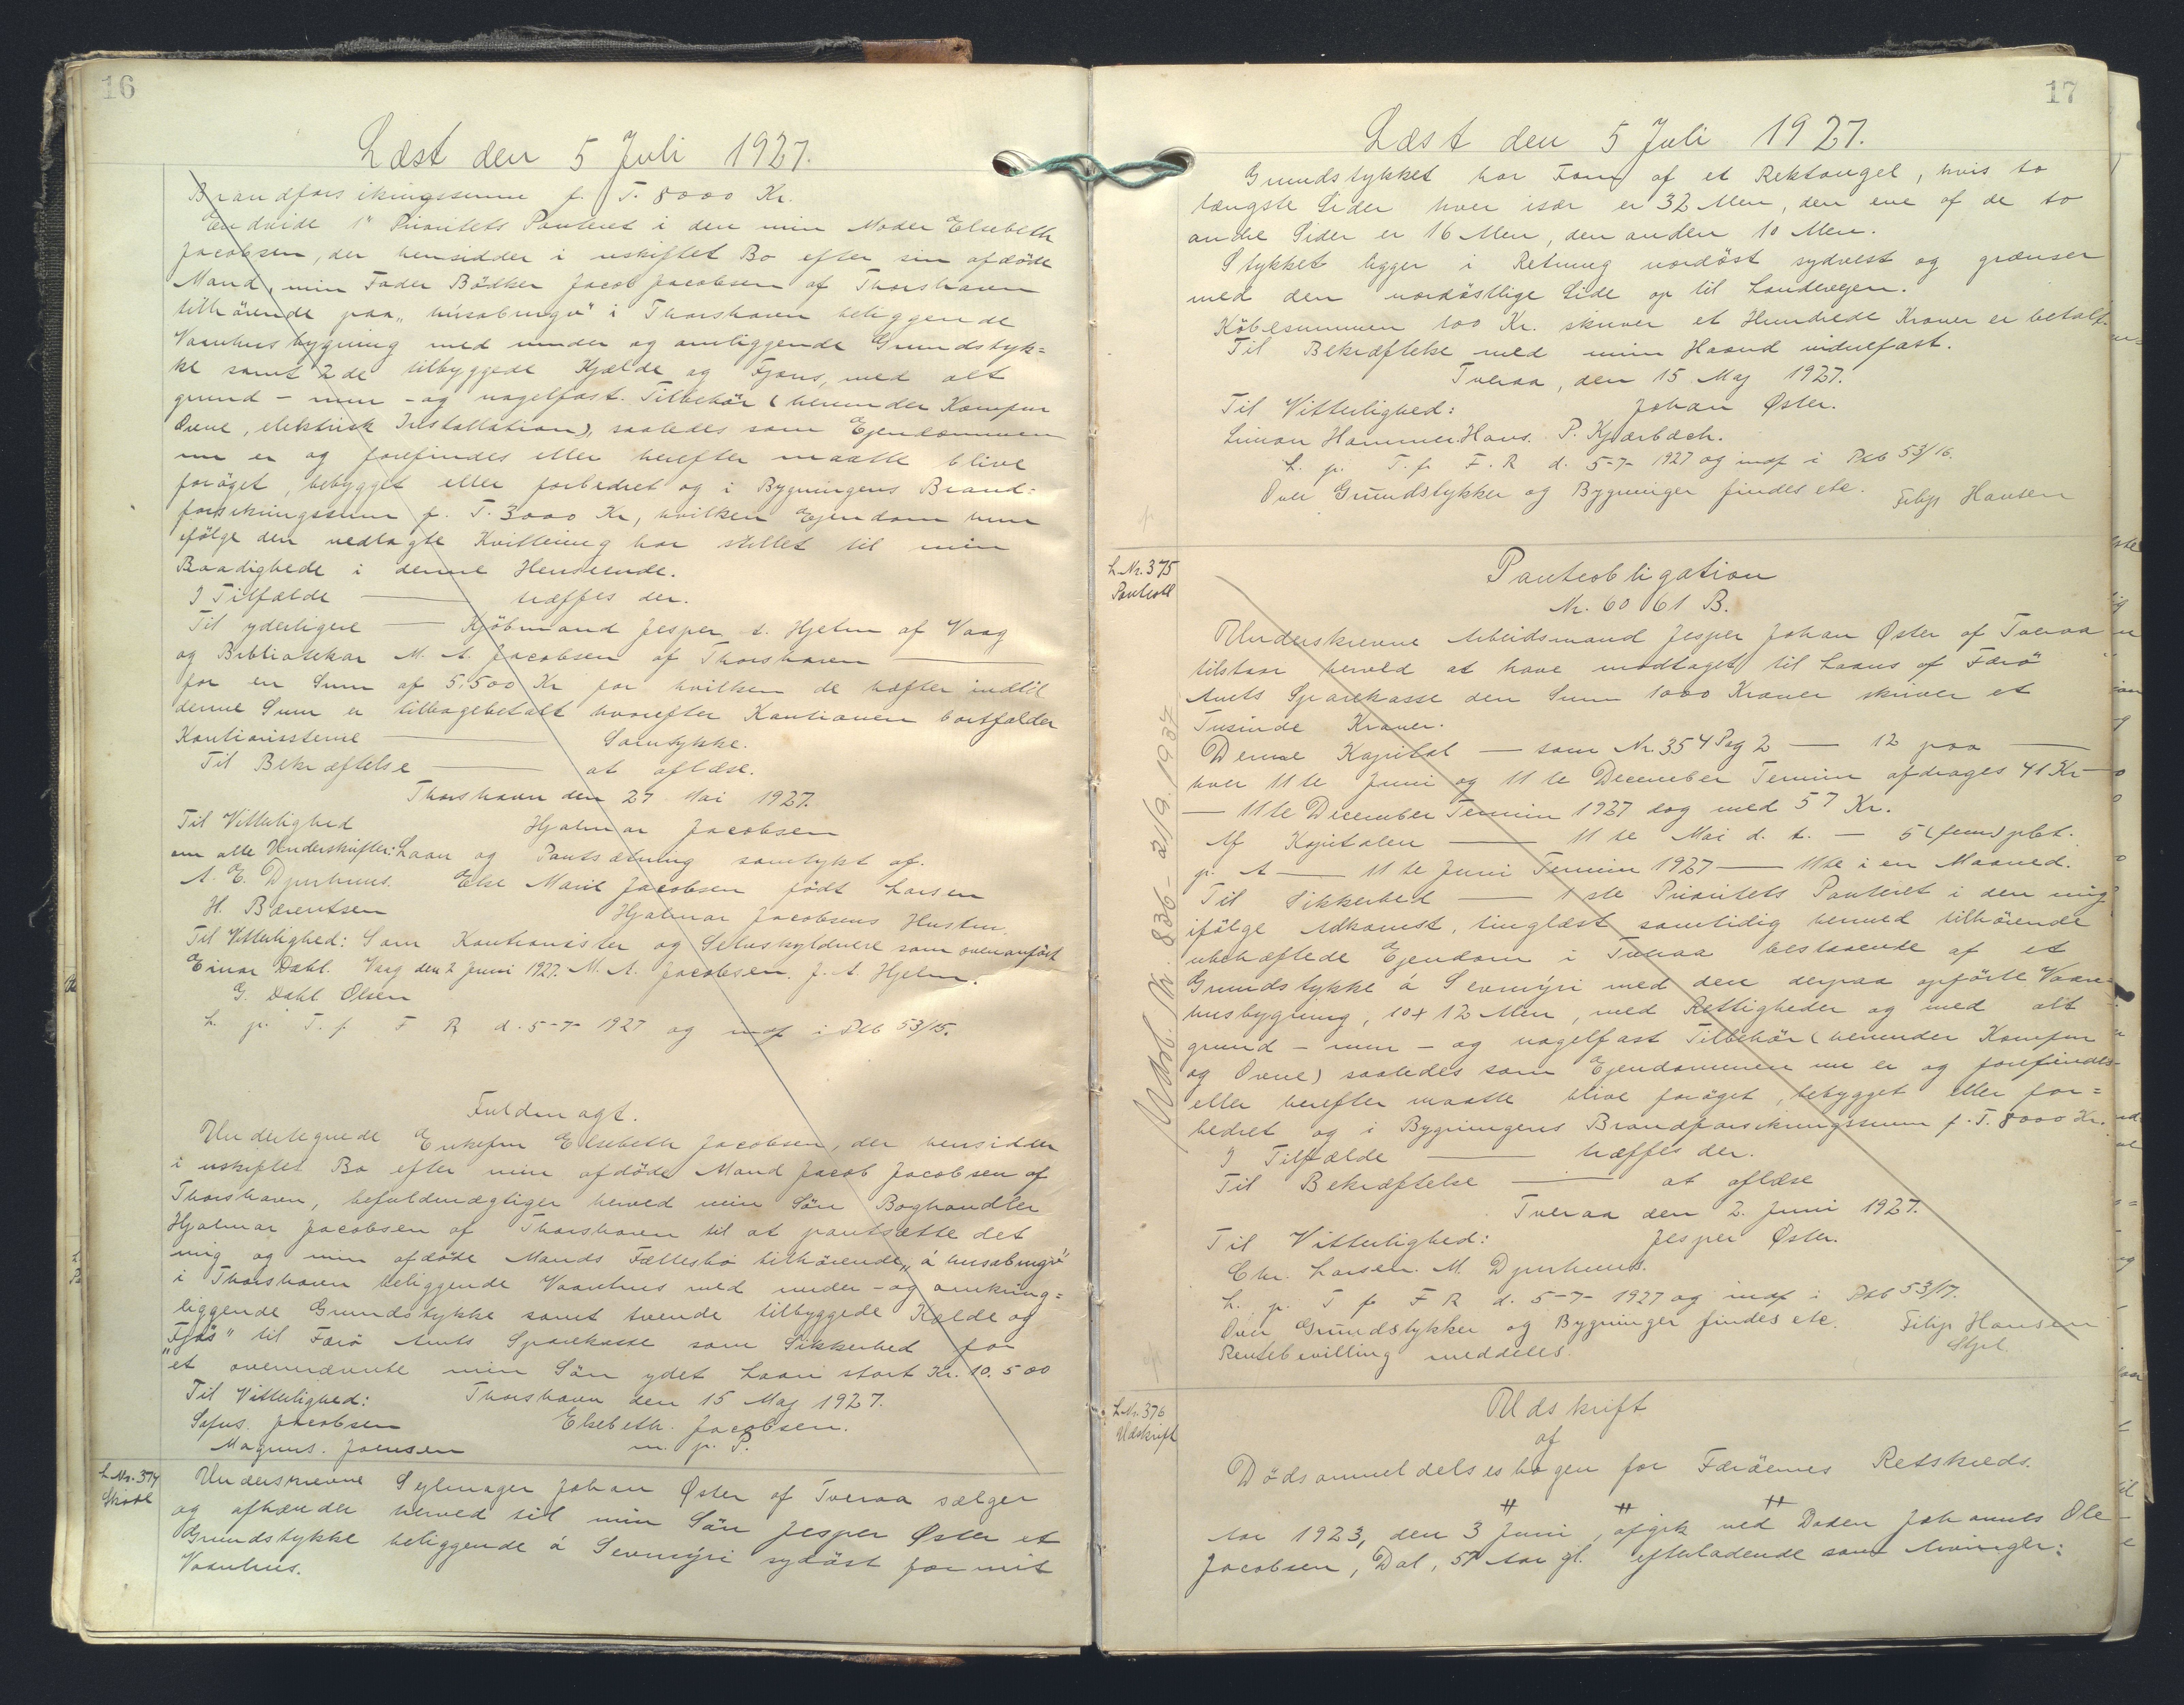 16
Læst den 5 Juli 1927.
Brandforsikringssum f. T. 8000 Kr.
Endvide 1" Prioritets Panteret i den min Moder Elsebeth
Jacobsen, der hensidder i uskiftet Bo efter sin afdöde
Mand, min Fader Bödker Jacob Jacobsen af Thorshavn
tilhörende paa „húsabrugv" i Thorshavn beliggende
Vaanhusbygning med under og omliggende Grundstyk=
ke samt 2de tilbyggede Kjælde og Fjøus, med alt
grund - mur - og nagelfast Tilbehör (herunder Komfur
Ovne, elektrisk Installation), saaledes som Ejendommen
nu er og forefindes eller herefter maatte blive
foröget, bebygget eller forbedret og i Bygningens Brand=
forsikringssum f. T. 3000 Kr, hvilken Ejendom hun
ifölge den vedlagte Kvittering har stillet til min
Raadighede i denne Henseende.
I Tilfælde — træffes der.
Til yderligere — Kjöbmand Jesper A. Hjelm af Vaag
og Bibliotekar M. A. Jacobsen af Thorshavn —
for en Sum af 5,500 Kr for hvilken de hæfter indtil
denne Sum er tilbagebetalt hvorefter Kautionen bortfalder
Kautionisterne — Samtykke.
Til Bekræftelse — at aflæse.
Thorshavn den 27 Mai 1927.
Til Vitterlighed Hjalmar Jacobsen
om alle Underskrifter: Laan og Pantsætning samtykt af.
A. E. Djurhuus. Else Marie Jacobsen födt Larsen
H. Bærentsen Hjalmar Jacobsens Hustru.
Til Vitterlighed: Som Kautionister og Selvskyldnere som ovenanfört
Einar Dahl. Vaag den 2 Juni 1927. M. A. Jacobsen. J. A. Hjelm.
G. Dahl Olsen
L. p. T. f. F R d. 5-7-1927 og indf i Ptb 53/15.
Fuldmagt.
Undertegnede Enkefru Elsebeth Jacobsen, der hensidder
i uskiftet Bo efter min afdöde Mand Jacob Jacobsen af
Thorshavn, befuldmægtiger herved min Sön Boghandler
Hjalmar Jacobsen af Thorshavn til at pantsætte det
mig og min afdöde Mands Fællesbo tilhörende „á húsabrugv"
i Thorshavn beliggende Vaanhus med under - og omkring=
liggende Grundstykke samt tvende tilbyggede Kjælde og
„Fjös" til Færö Amts Sparekasse som Sikkerhed for
et ovennævnte min Sön ydet Laan stort Kr. 10.500
Til Vitterlighed: Thorshavn den 15 Maj 1927.
Sofus. Jacobsen Elsebeth. Jacobsen.
Magnus. Joensen m. p. P.
L Nr. 374
Skøde
Underskrevne Sejlmager Johan Øster af Tveraa sælger
og afhænder herved til min Sön Jesper Øster et
Grundstykke beliggende á Sevmýri sydöst for mit
Vaanhus.
17
Læst den 5 Juli 1927.
Grundstykket har Form af et Rektangel, hvis to
længste Sider hver især er 32 Alen, den ene af de to
andre Sider er 16 Alen, den anden 10 Alen.
Stykket ligger i Retning nordöst sydvest og grænser
med den nordöstlige Side op til Landevejen.
Köbesummen 100 Kr. skriver et Hundrede Kroner er betalt.
Til Bekræftelse med min Haand vidnefast.
Tveraa, den 15 Maj 1927.
Til Vitterlighed: Johan Øster.
Simon Hammer. Hans. P. Kjærbæch.
L. p. T. f. F. R d. 5-7-1927 og indf i Ptb 53/16.
Over Grundstykker og Bygninger findes etc. Filip Hansen
L Nr. 375
Panteobl
Panteobligation
Nr. 6061 B.
Underskrevne Arbeidsmand Jesper Johan Øster af Tveraa
tilstaar herved at have modtaget til Laans af Færö
Amts Sparekasse den Sum 1000 Kroner skriver et
Tusinde Kroner.
Denne Kapital — som Nr. 354 Pag 2 — 12 paa —
hver 11te Juni og 11te December Termin afdrages 41 Kr —
— 11te December Termin 1927 dog med 57 Kr.
Af Kapitalen — 11te Mai d. A. — 5 (fem) pCt.
p. A — 11te Juni Termin 1927 — 11te i en Maaned.
Til Sikkerhed — 1ste Prioritets Panteret i den mig
ifölge Adkomst, tinglæst samtidig hermed tilhörende
ubehæftede Ejendom i Tveraa bestaaende af et
Grundstykke á Sevmýri med den derpaa opförte Vaan=
husbygning, 10 x 12 Alen, med Rettigheder og med alt
grund - mur - og nagelfast Tilbehör (herunder Komfur
og Ovne) saaledes som Ejendommen nu er og forefindes-
eller herefter maatte blive foröget, bebygget eller for=
bedret og i Bygningens Brandforsikringssum f. T. 8000 Kr.
I Tilfælde — træffes der.
Til Bekræftelse — at aflæse
Tveraa den 2. Juni 1927.
Til Vitterlighed: Jesper Øster.
Chr. Larsen. M. Djurhuus.
L. p. T f F R d. 5-7-1927 og indf i Ptb 53/17.
Over Grundstykker og Bygninger findes etc. Filip Hansen
Rentebevilling meddeles.
Udsl. Nr. 836 - 21/9. 1937
L Nr. 376
Udskrift
Udskrift
af
Dödsanmeldelsesbogen for Færöernes Retskreds.
Aar 1923, den 3 Juni, afgik ved Döden Johannes Ole
Jacobsen, Dal, 57 Aar gl. efterladende som Arvinger: